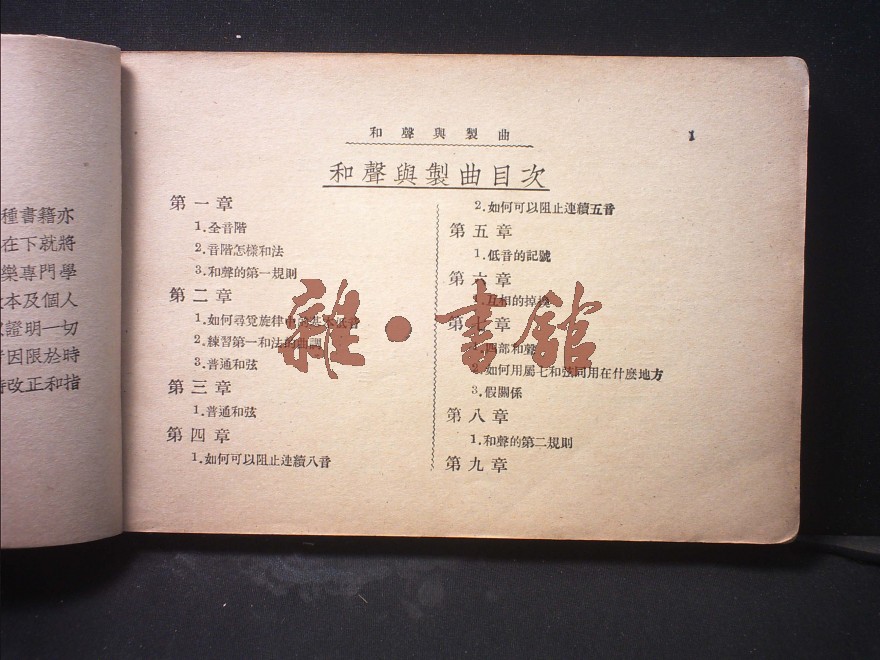 種書籍亦
在下就將
樂專門學
本及個人
證明一切
因限於時
改正和指
和聲與製曲
1
和聲與製曲目次
第一章
1.全音階
2.音階怎樣和法
3.和聲的第一規則
第二章
1.如何尋覓旋律中的基本低音
2.練習第一和法的曲調
3.普通和弦
第三章
1.普通和弦
第四章
1.如何可以阻止連續八音
2.如何可以阻止連續五音
第五章
1.低音的記號
第六章
1.互相的掉換
第七章
1.四部和聲
2.如何用屬七和弦同用在什麼地方
3.假關係
第八章
1.和聲的第二規則
第九章
雜·書館